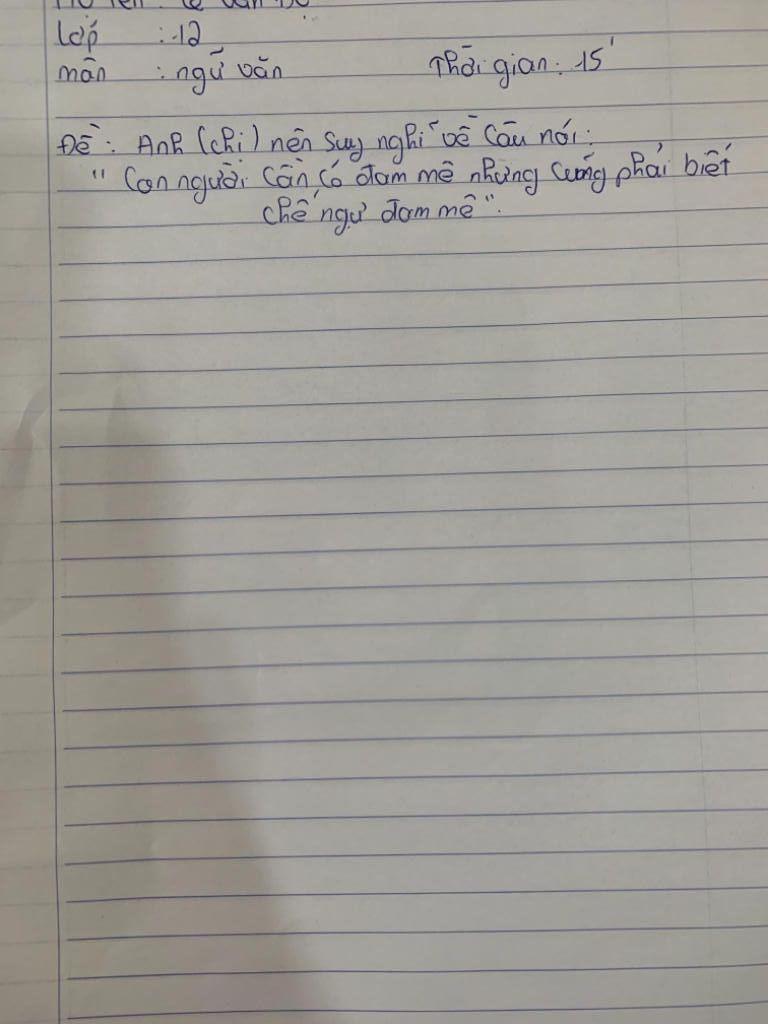 Lớp : 12
môn : ngữ văn Thời gian: 15'
Đề: Anh (chị) nên suy nghĩ về câu nói:
" Con người cần có đam mê nhưng cũng phải biết
chế ngự đam mê".